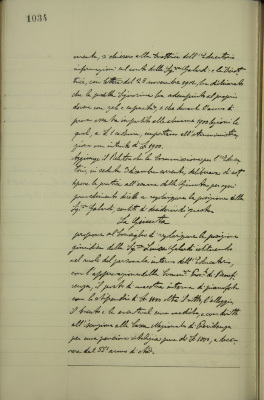 1034
corrente, si chiesero alla Direttrice dell'Educatorio
informazioni sul conto della Sig.na Galardi e la Diret-
trice, con lettera del 28 novembre 1902, ha dichiarato
che la predetta Signorina ha adempiuto al proprio
dovere con zelo e capacità, e che durante l'anno di
prova essa ha impartito alle alunne lezioni le
quali, a £ 1 ciascuna, importano all'Amministra-
zione un introito di £ 1900.
Aggiunge il Relatore che la Commissione per l'Educa-
torio, in seduta 3 dicembre corrente, deliberava di sot-
toporre la pratica all'esame della Giunta per ogni
provvedimento diretto a regolarizzare la posizione della
Sig.na Galardi, sortito di
La Giunta
propone al Consiglio di regolarizzare la posizione
giuridica della Sig.na Luisa Galardi istituendo
nel ruolo del personale interno dell'Educatorio,
con l'approvazione della Comm. Prov. di Benefi-
cenza, il posto di maestra interna di pianoforte
con lo stipendio di £ 800 oltre il vitto, l'alloggio,
il bucato e la assistenza medica, e con diritto
all'iscrizione alla Cassa Nazionale di Previdenza
per una pensione di £ a decor-
rere dal 55° anno di età.